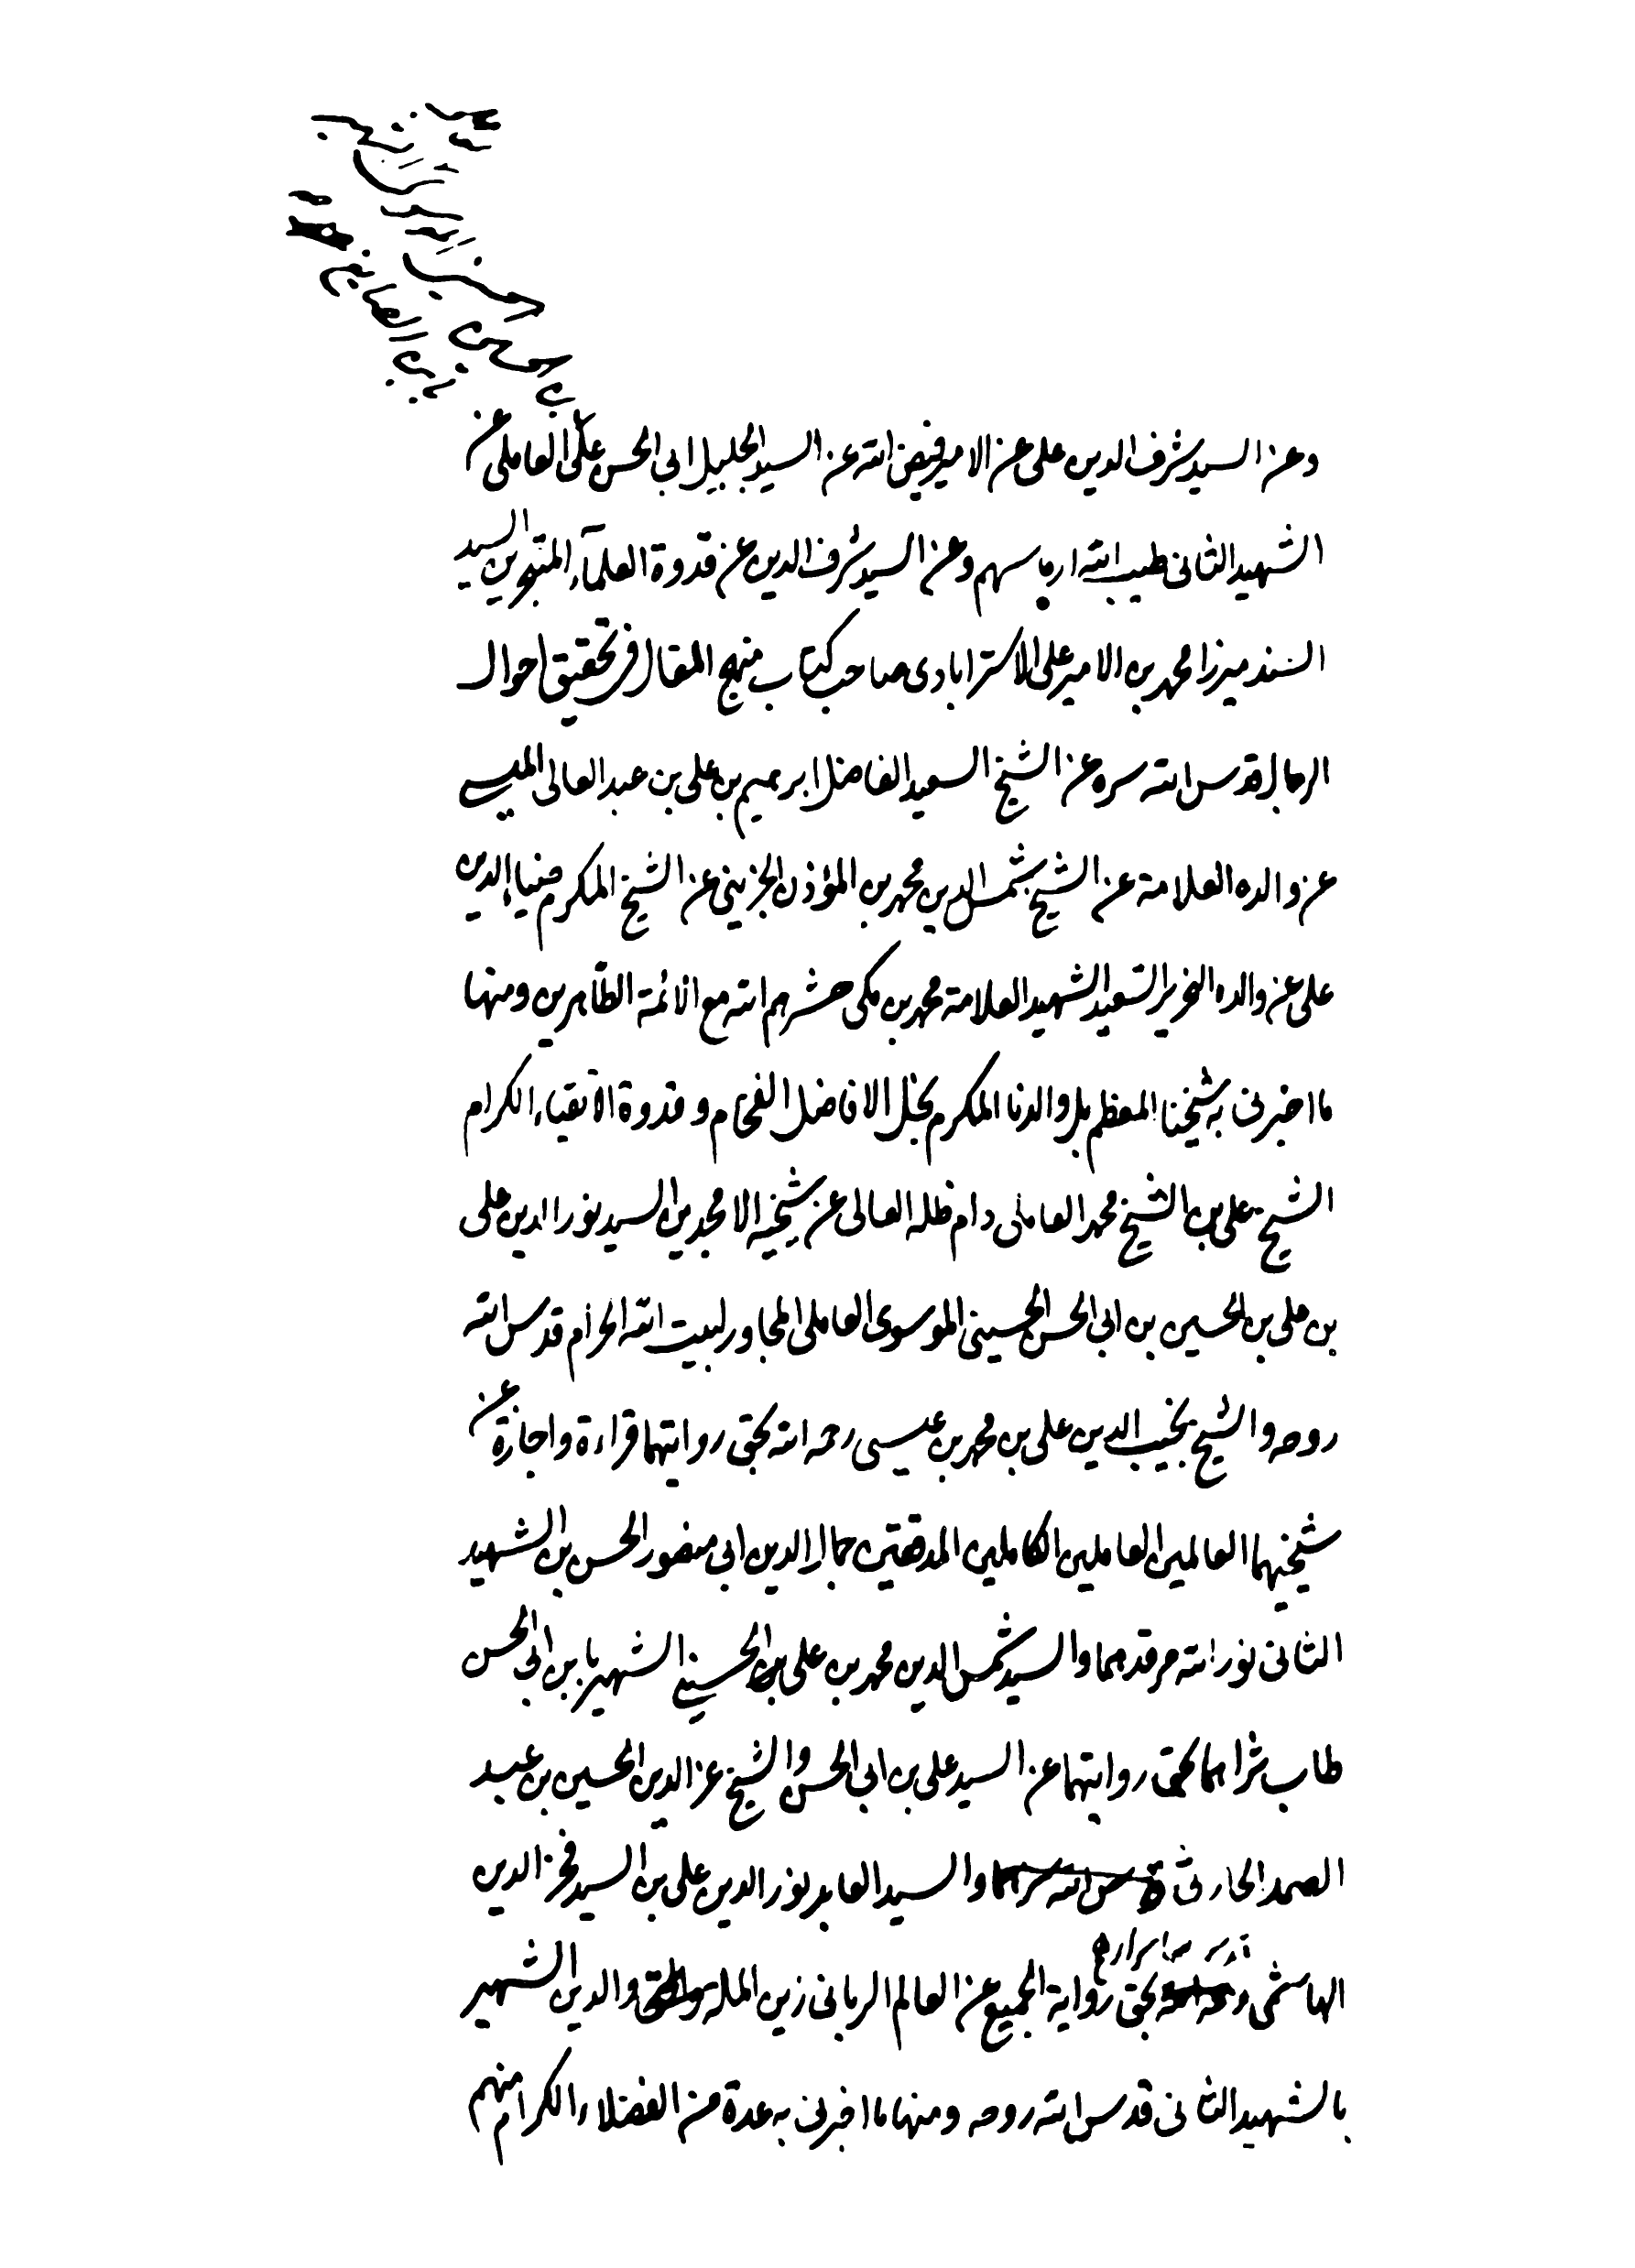 وعن السيد شرف الدين على عن الامير فيض الله عن السيد الجليل ابى الحسن على العاملى عن
الشهيد الثانى طيب الله ارماسهم وعن السيد شرف الدين عن قدوة العلمآء المتبحرين السيد
السند ميرزا محمد بن الامير على الاسترابادى صاحب كتاب منهج المقال فى تحقيق احوال
الرجال قدس الله سره عن الشيخ السعيد الفاضل ابرهيم بن على بن عبد العالى الميسى
عن والده العلامة عن الشيخ شمس الدين محمد بن المؤذن الجزينى عن الشيخ المكرم ضياء الدين
على عن والده النحرير السعيد الشهيد العلامة محمد بن مكى حشرهم الله مع الائمة الطاهرين ومنها
ما اخبرنى به شيخنا المعظم بل والدنا المكرم نجل الافاضل الفخام وقدوة الاتقياء الكرام
الشيخ على بن الشيخ محمد العاملى دام ظله العالى عن شيخيه الامجدين السيد نور الدين على
بن على بن الحسين بن ابى الحسن الحسينى الموسوى العاملى المجاور لبيت الله الحرام قدس الله
روحه والشيخ نجيب الدين على بن محمد بن عيسى رحمه الله بحق روايتهما قراءة واجازة عن
شيخيهما العالمين العاملين الكاملين المدققين جمال الدين ابى منصور الحسن بن الشهيد
الثانى نور الله مرقدهما والسيد شمس الدين محمد بن على بن الحسينى الشهير بابن ابى الحسن
طاب ثراهما بحق روايتهما عن السيد على بن ابى الحسن والشيخ عز الدين الحسين بن عبد
الصمد الحارثى والسيد العابد نور الدين على بن السيد فخر الدين
الهاشمى قدس الله اسرارهم بحق رواية الجميع عن العالم الربانى زين الملة والدين الشهير
بالشهيد الثانى قدس الله روحه ومنها ما اخبرنى به عدة من الفضلاء الكرام منهم